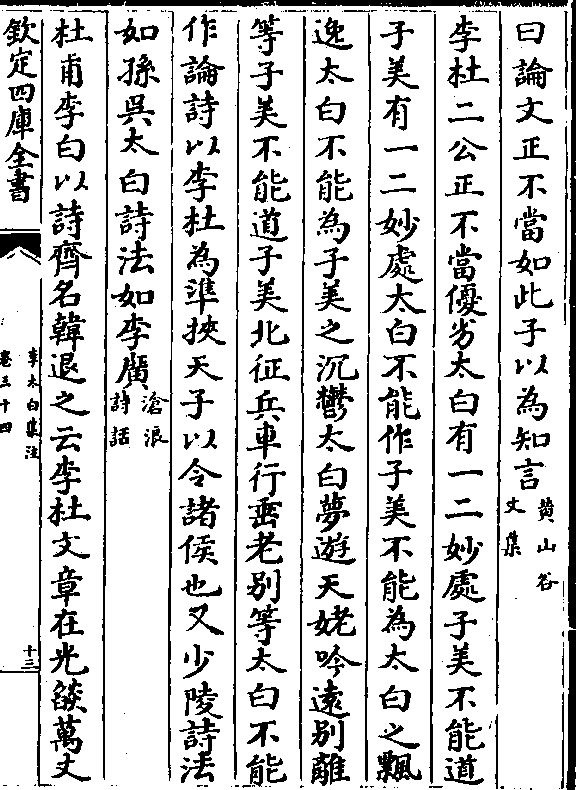 曰論文正不當如此予以為知言黄山谷文集
李杜二公正不當優劣太白有一二妙處子美不能道
子美有一二妙處太白不能作子美不能為太白之飄
逸太白不能為子美之沉鬱太白夢遊天姥吟遠别離
等子美不能道子美北征兵車行垂老别等太白不能
作論詩以李杜為準挾天子以令諸侯也又少陵詩法
如孫吳太白詩法如李廣滄浪詩話
杜甫李白以詩齊名韓退之云李杜文章在光燄萬丈
欽定四庫全書
李太白集注
卷三十四
十三